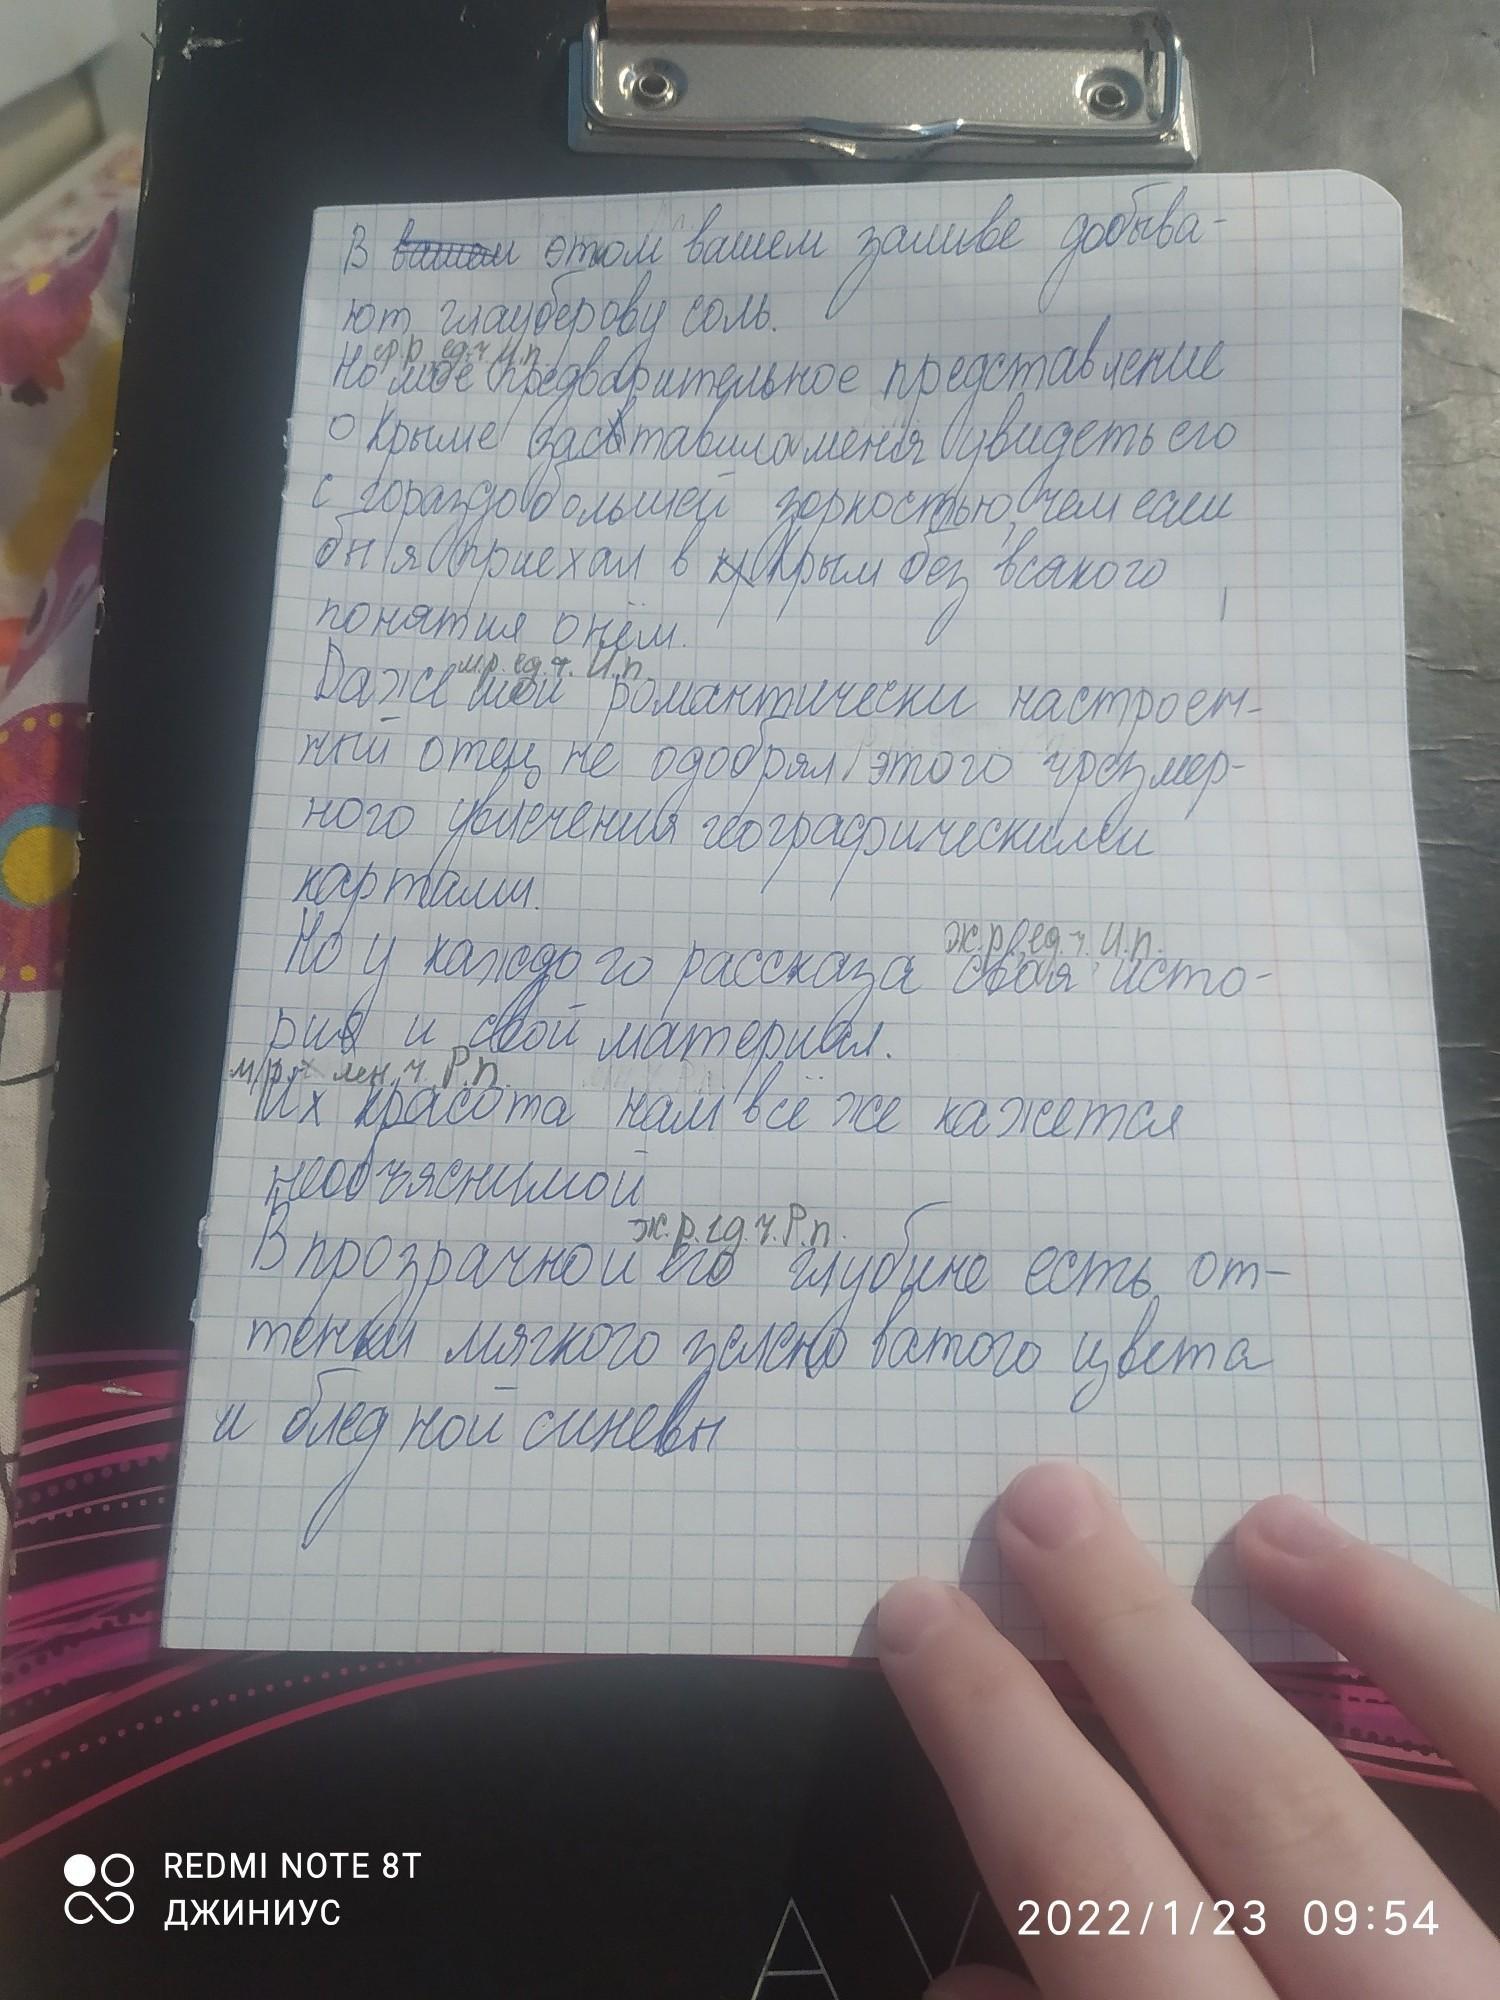 В вашем этом вашем заливе добыва-
ют глауберову соль.
ср.р ед.ч И.п.
Но моё предварительное представление
о Крыме заставило меня увидеть его
с гораздо большей зоркостью, чем если
бы я приехал в Крым без всякого
понятия о нём.
м.р. ед.ч. И.п.
Даже мой романтически настроен-
ный отец не одобрял этого чрезмер-
ного увлечения географическими
картами.
ж.р. ед.ч И.п.
Но у каждого рассказа своя исто-
рия и свой материал.
м.р. мн.ч. Р.п.
Их красота нам всё же кажется
необъяснимой
ж.р. ед.ч. Р.п.
В прозрачной его глубине есть от-
тенки мягкого зелено ватого цвета
и бледной синевы
REDMI NOTE 8T
ДЖИНИУС
2022/1/23 09:54
A V